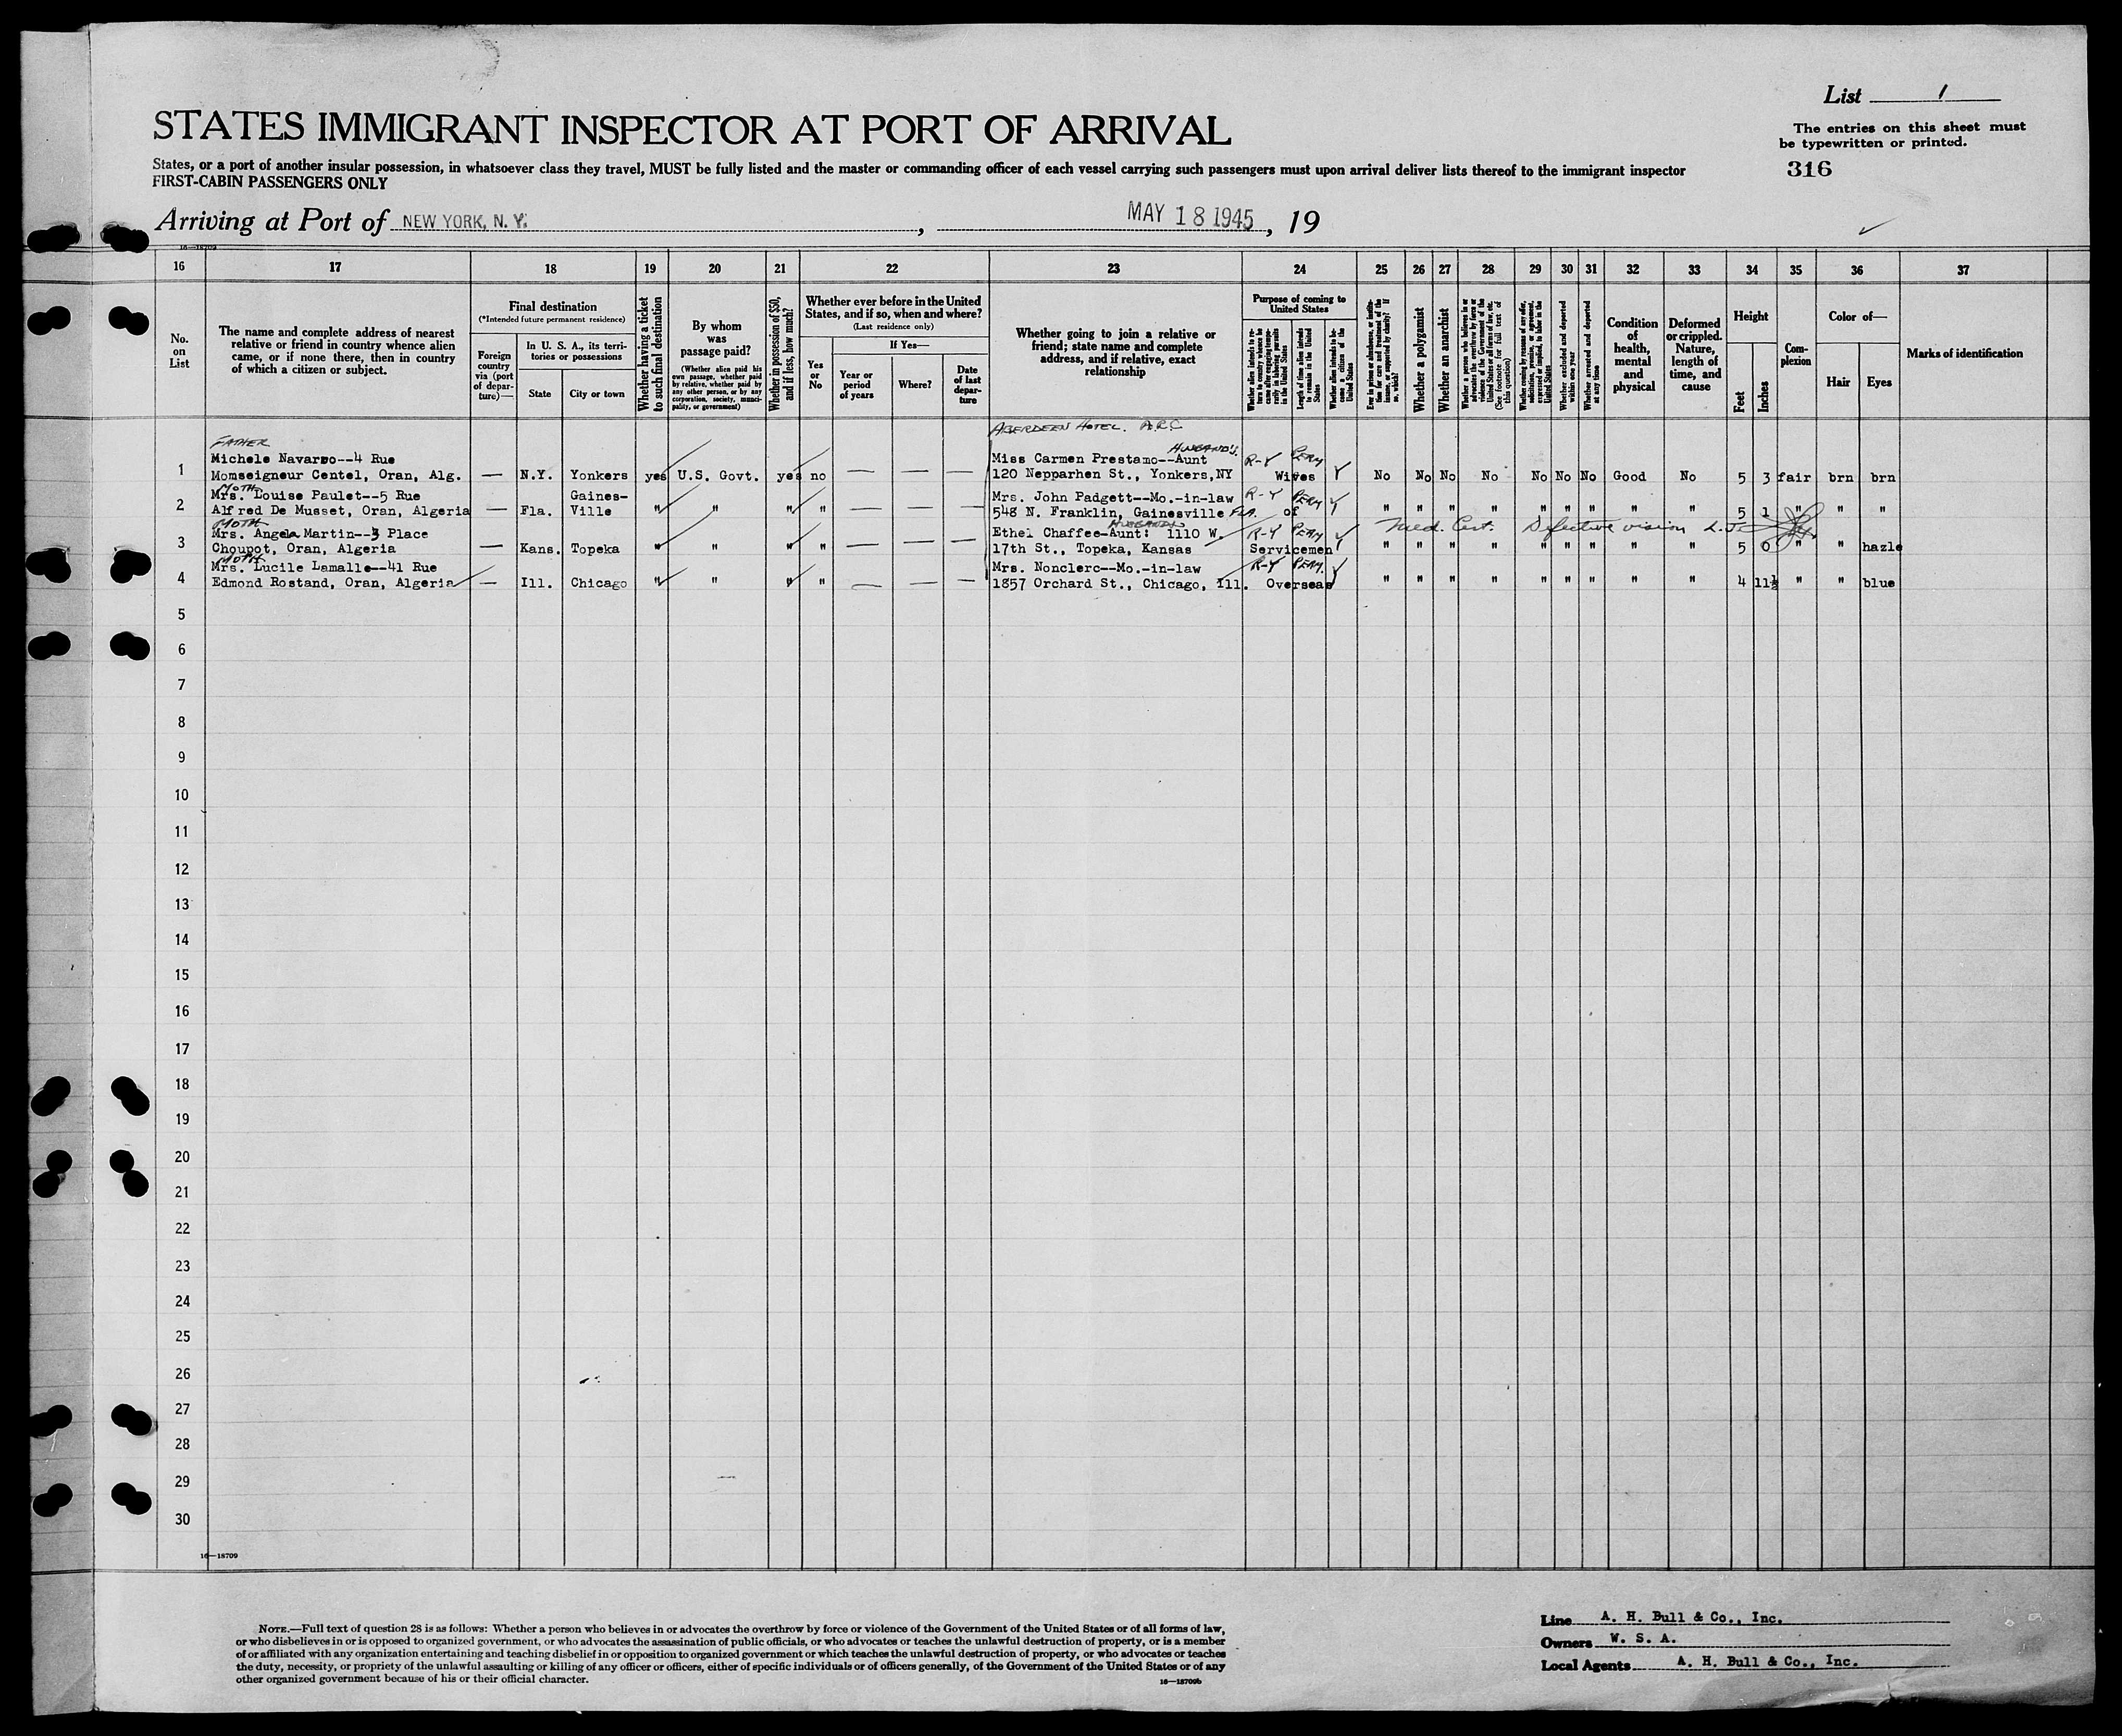 List 1
The entries on this sheet must
be typewritten or printed.
316
STATES IMMIGRANT INSPECTOR AT PORT OF ARRIVAL
States, or a port of another insular possession, in whatsoever class they travel, MUST be fully listed and the master or commanding officer of each vessel carrying such passengers must upon arrival deliver lists thereof to the immigrant inspector
FIRST-CABIN PASSENGERS ONLY
Arriving at Port of NEW YORK, N. Y. , MAY 18 1945 , 19
16—18709
16 17 18 19 20 21 22 23 24 25 26 27 28 29 30 31 32 33 34 35 36 37
No.
on
List
The name and complete address of nearest
relative or friend in country whence alien
came, or if none there, then in country
of which a citizen or subject.
Final destination
(*Intended future permanent residence)
Foreign
country
via (port
of depar-
ture)—
In U. S. A., its terri-
tories or possessions
State
City or town
Whether having a ticket
to such final destination
By whom
was
passage paid?
(Whether alien paid his
own passage, whether paid
by relative, whether paid by
any other person, or by any
corporation, society, munici-
pality, or government)
Whether in possession of $50,
and if less, how much?
Whether ever before in the United
States, and if so, when and where?
(Last residence only)
If Yes—
Yes
or
No
Year or
period
of years
Where?
Date
of last
depar-
ture
Whether going to join a relative or
friend; state name and complete
address, and if relative, exact
relationship
Purpose of coming to
United States
Whether alien intends to re-
turn to country whence he
came after engaging tempo-
rarily in laboring pursuits
in the United States
Length of time alien intends
to remain in the United
States
Whether alien intends to be-
come a citizen of the
United States
Ever in prison or almshouse, or institu-
tion for care and treatment of the
insane, or supported by charity? If
so, which?
Whether a polygamist
Whether an anarchist
Whether a person who believes in or
advocates the overthrow by force or
violence of the Government of the
United States or all forms of law, etc.
(See footnote for full text of
this question)
Whether coming by reason of any offer,
solicitation, promise, or agreement,
expressed or implied, to labor in the
United States
Whether excluded and deported
within one year
Whether arrested and deported
at any time
Condition
of
health,
mental
and
physical
Deformed
or crippled.
Nature,
length of
time, and
cause
Height
Feet
Inches
Com-
plexion
Color of—
Hair
Eyes
Marks of identification
ABERDEEN HOTEL. A.R.C
FATHER
HUSBAND'S
Michele Navarro--4 Rue Miss Carmen Prestamo--Aunt R-Y PERM
1 Momseigneur Centel, Oran, Alg. — N.Y. Yonkers yes U.S. Govt. yes no — — — 120 Nepparhen St., Yonkers,NY Wives Y No No No No No No No Good No 5 3 fair brn brn
MOTH
Mrs. Louise Paulet--5 Rue Gaines- Mrs. John Padgett--Mo.-in-law R-Y PERM
2 Alfred De Musset, Oran, Algeria — Fla. Ville " " " " — — — 548 N. Franklin, Gainesville FLA. of Y " " " " " " " " " 5 1 " " "
MOTH HUSBAND'S Med. Cert. Defective vision L.J.
Mrs. Angela Martin--3 Place Ethel Chaffee-Aunt: 1110 W. R-Y PERM
3 Choupot, Oran, Algeria — Kans. Topeka " " " " — — — 17th St., Topeka, Kansas Servicemen Y " " " " " " " " " 5 0 " " hazle
MOTH
Mrs. Lucile Lamalle--41 Rue Mrs. Nonclerc--Mo.-in-law R-Y PERM.
4 Edmond Rostand, Oran, Algeria — Ill. Chicago " " " " — — — 1857 Orchard St., Chicago, Ill. Overseas Y " " " " " " " " " 4 11½ " " blue
5
6
7
8
9
10
11
12
13
14
15
16
17
18
19
20
21
22
23
24
25
26
27
28
29
30
16—18709
NOTE.—Full text of question 28 is as follows: Whether a person who believes in or advocates the overthrow by force or violence of the Government of the United States or of all forms of law,
or who disbelieves in or is opposed to organized government, or who advocates the assassination of public officials, or who advocates or teaches the unlawful destruction of property, or is a member
of or affiliated with any organization entertaining and teaching disbelief in or opposition to organized government or which teaches the unlawful destruction of property, or who advocates or teaches
the duty, necessity, or propriety of the unlawful assaulting or killing of any officer or officers, either of specific individuals or of officers generally, of the Government of the United States or of any
other organized government because of his or their official character.
16—18709b
Line A. H. Bull & Co., Inc.
Owners W. S. A.
Local Agents A. H. Bull & Co., Inc.